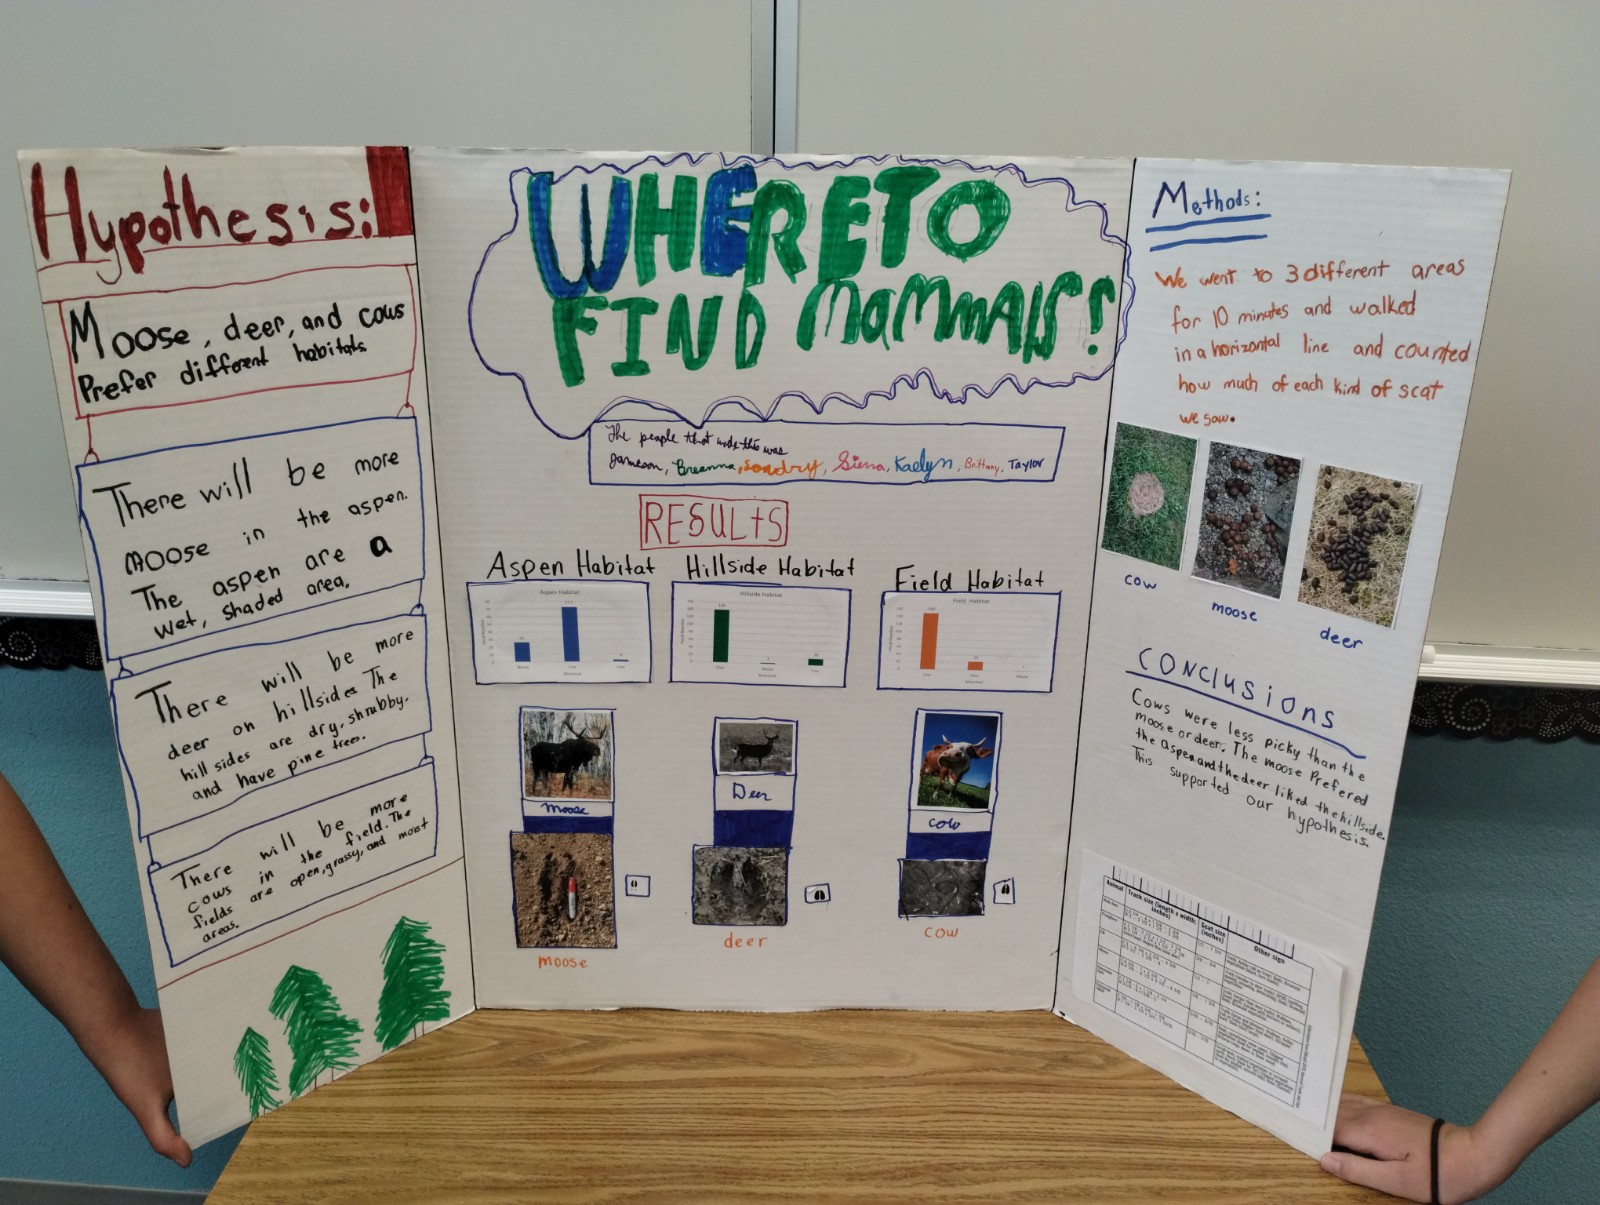 Hypothesis:
Moose, deer, and cows
Prefer different habitats
There will be more
moose in the aspen.
The aspen are a
wet, shaded area.
There will be more
deer on hillsides The
hill sides are dry, shrubby,
and have pine trees.
There will be more
cows in the field. The
fields are open, grassy, and moist
areas.
WHERE TO
FIND MAMMALS!
The people that made this was
Jameson, Breanna, Sondry, Siena, Kaelyn, Brittany, Taylor
RESULTS
Aspen Habitat
Hillside Habitat
Field Habitat
Aspen Habitat
Moose
Cow
Deer
Mammal
Hillside Habitat
Deer
Moose
Cow
Mammal
Field Habitat
Cow
Deer
Moose
Mammal
moose
Deer
cow
moose
deer
cow
Methods:
We went to 3 different areas
for 10 minutes and walked
in a horizontal line and counted
how much of each kind of scat
we saw.
cow
moose
deer
CONCLUSIONS
Cows were less picky than the
moose or deer. The moose Prefered
the aspen and the deer liked the hillside.
This supported our hypothesis.
Animal
Track size (length x width; inches)
Scat size (inches)
Other sign